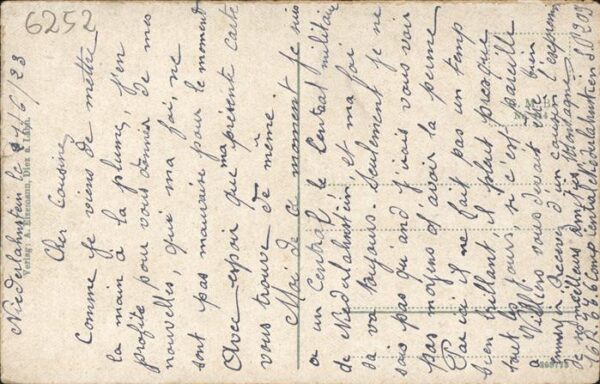 6252
Niederlahnstein le 6/23
Verlag: A. Eisenmann, Diez a. Lahn.
Cher Cousin,
Comme je viens de mettre
la main à la plume, j'en
profite pour vous donner de mes
nouvelles, qui ma foi, ne
sont pas mauvaise pour le moment
Avec espoir que ma présente carte
vous trouve de même.
Moi de ce moment je suis
a un central, le Central militaire
de Niederlahnstein et ma foi
sa va toujours. Seulement je ne
sais pas quand j'irais vous voir
pas moyens d'avoir la perme
Par ici il ne fait pas un temps
bien brillant, il pleut presque
tout les jours, si c'est pareille
a Villiers vous devait être bien
Recever d'un cousin l'expression
de ses meilleurs
Niederlahnstein S.P 209